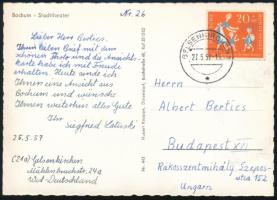 Bochum - Stadttheater
Nr. 26
Lieber Herr Bertics.
Ihren lieben Brief mit dem
schönen Photo und die Ansichts-
karte habe ich mit Freude
erhalten. Heute sende ich
Ihnen eine Ansicht aus
Bochum und wünsche
Ihnen weiterhin alles Gute.
Ihr
Siegfried
25.5.57
(21a) Gelsenkirchen
Mühlenbruchstr. 24a
West-Deutschland
20
GELSENKIRCHEN
27.5.57
Herrn
Albert Bertics
Budapest XVI
Rákosszentmihály Szepes-
utca 152
Ungarn